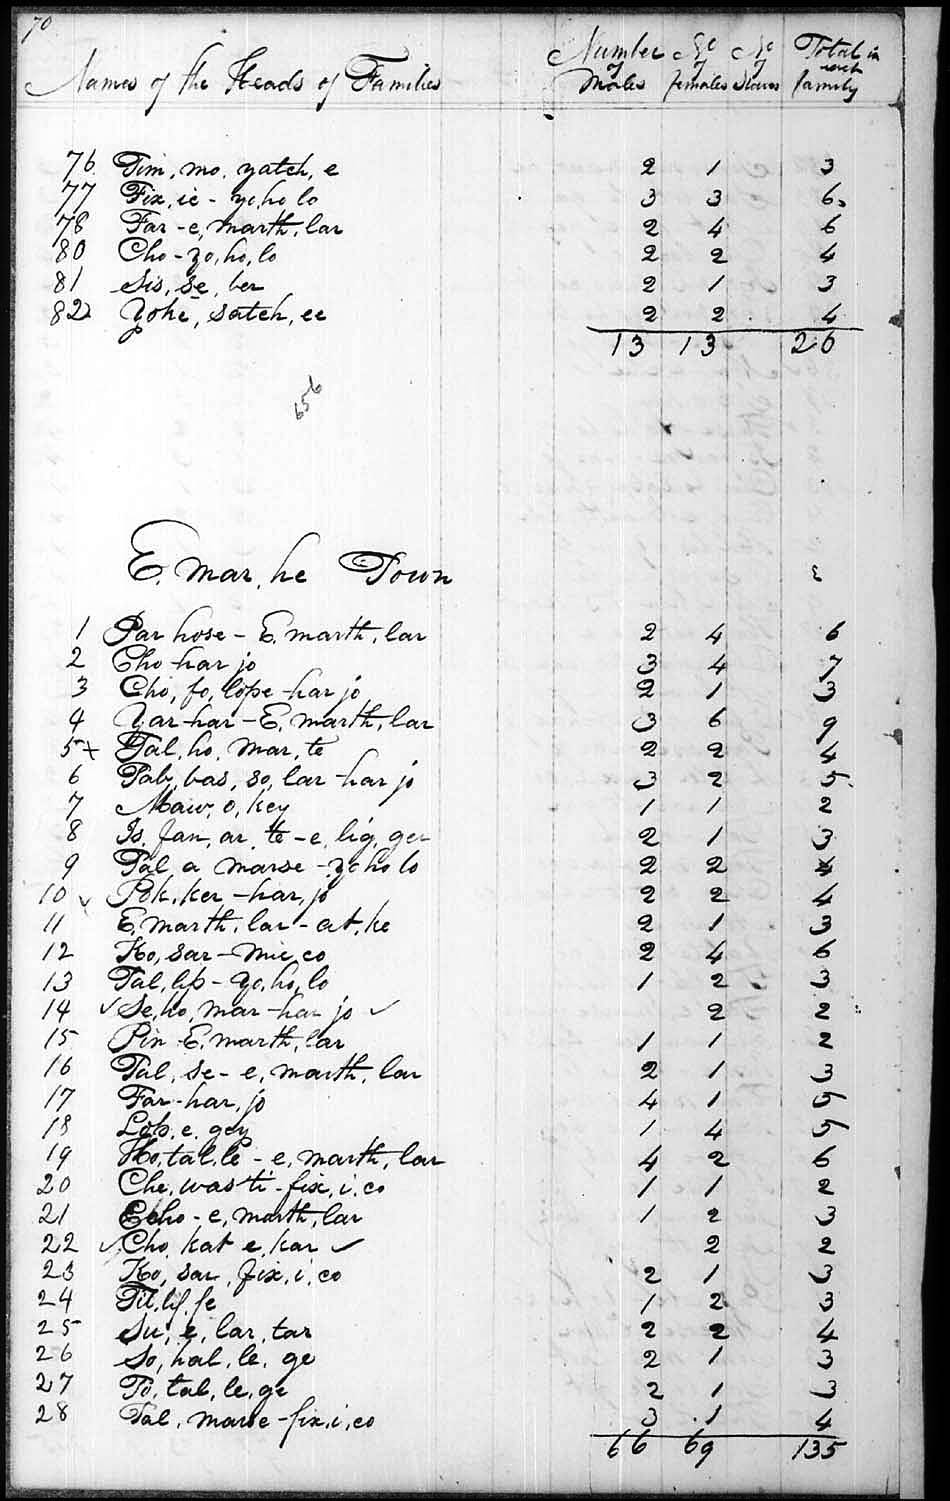 70
Names of the Heads of Families Number of Males No of females No of Slaves Total in each family
76 Tim, mo, yatch, e 2 1 3
77 Fix, ic - yo, ho lo 3 3 6
78 Far - e, marth, lar 2 4 6
80 Cho - yo, ho, lo 2 2 4
81 Sis, se, ber 2 1 3
82 Yohe, satch, ee 2 2 4
13 13 26
656
E. mar, he Town
1 Par hose - E, marth, lar 2 4 6
2 Cho har jo 3 4 7
3 Cho, fo, lope - har jo 2 1 3
4 Yar har - E, marth, lar 3 6 9
5 + Tal, ho, mar, te 2 2 4
6 Tab, bas, so, lar - har jo 3 2 5
7 Maw, o, key 1 1 2
8 Is, fan, ar, te - e, lig, ger 2 1 3
9 Tal, a marse - yoho lo 2 2 4
10 ✓ Pok, ker - har, jo 2 2 4
11 E, marth, lar - at, ke 2 1 3
12 Ko, sar - mic, co 2 4 6
13 Tal, lip - yo, ho, lo 1 2 3
14 ✓ Se, ho, mar - har jo ✓ 2 2
15 Pin - E, marth, lar 1 1 2
16 Tal, se - e, marth, lar 2 1 3
17 Far - har, jo 4 1 5
18 Lop, e, gey 1 4 5
19 Ho, tal, le - e, marth, lar 4 2 6
20 Che, was ti - fix, i, co 1 1 2
21 Echo - e, marth, lar 1 2 3
22 ✓ Cho, kat e, kar ✓ 2 2
23 Ko, sar, fix, i, co 2 1 3
24 Til, lif, fe 1 2 3
25 Su, e, lar, tar 2 2 4
26 So, hal, le, ge 2 1 3
27 To, tal, le, ge 2 1 3
28 Tal, marse - fix, i, co 3 1 4
66 69 135